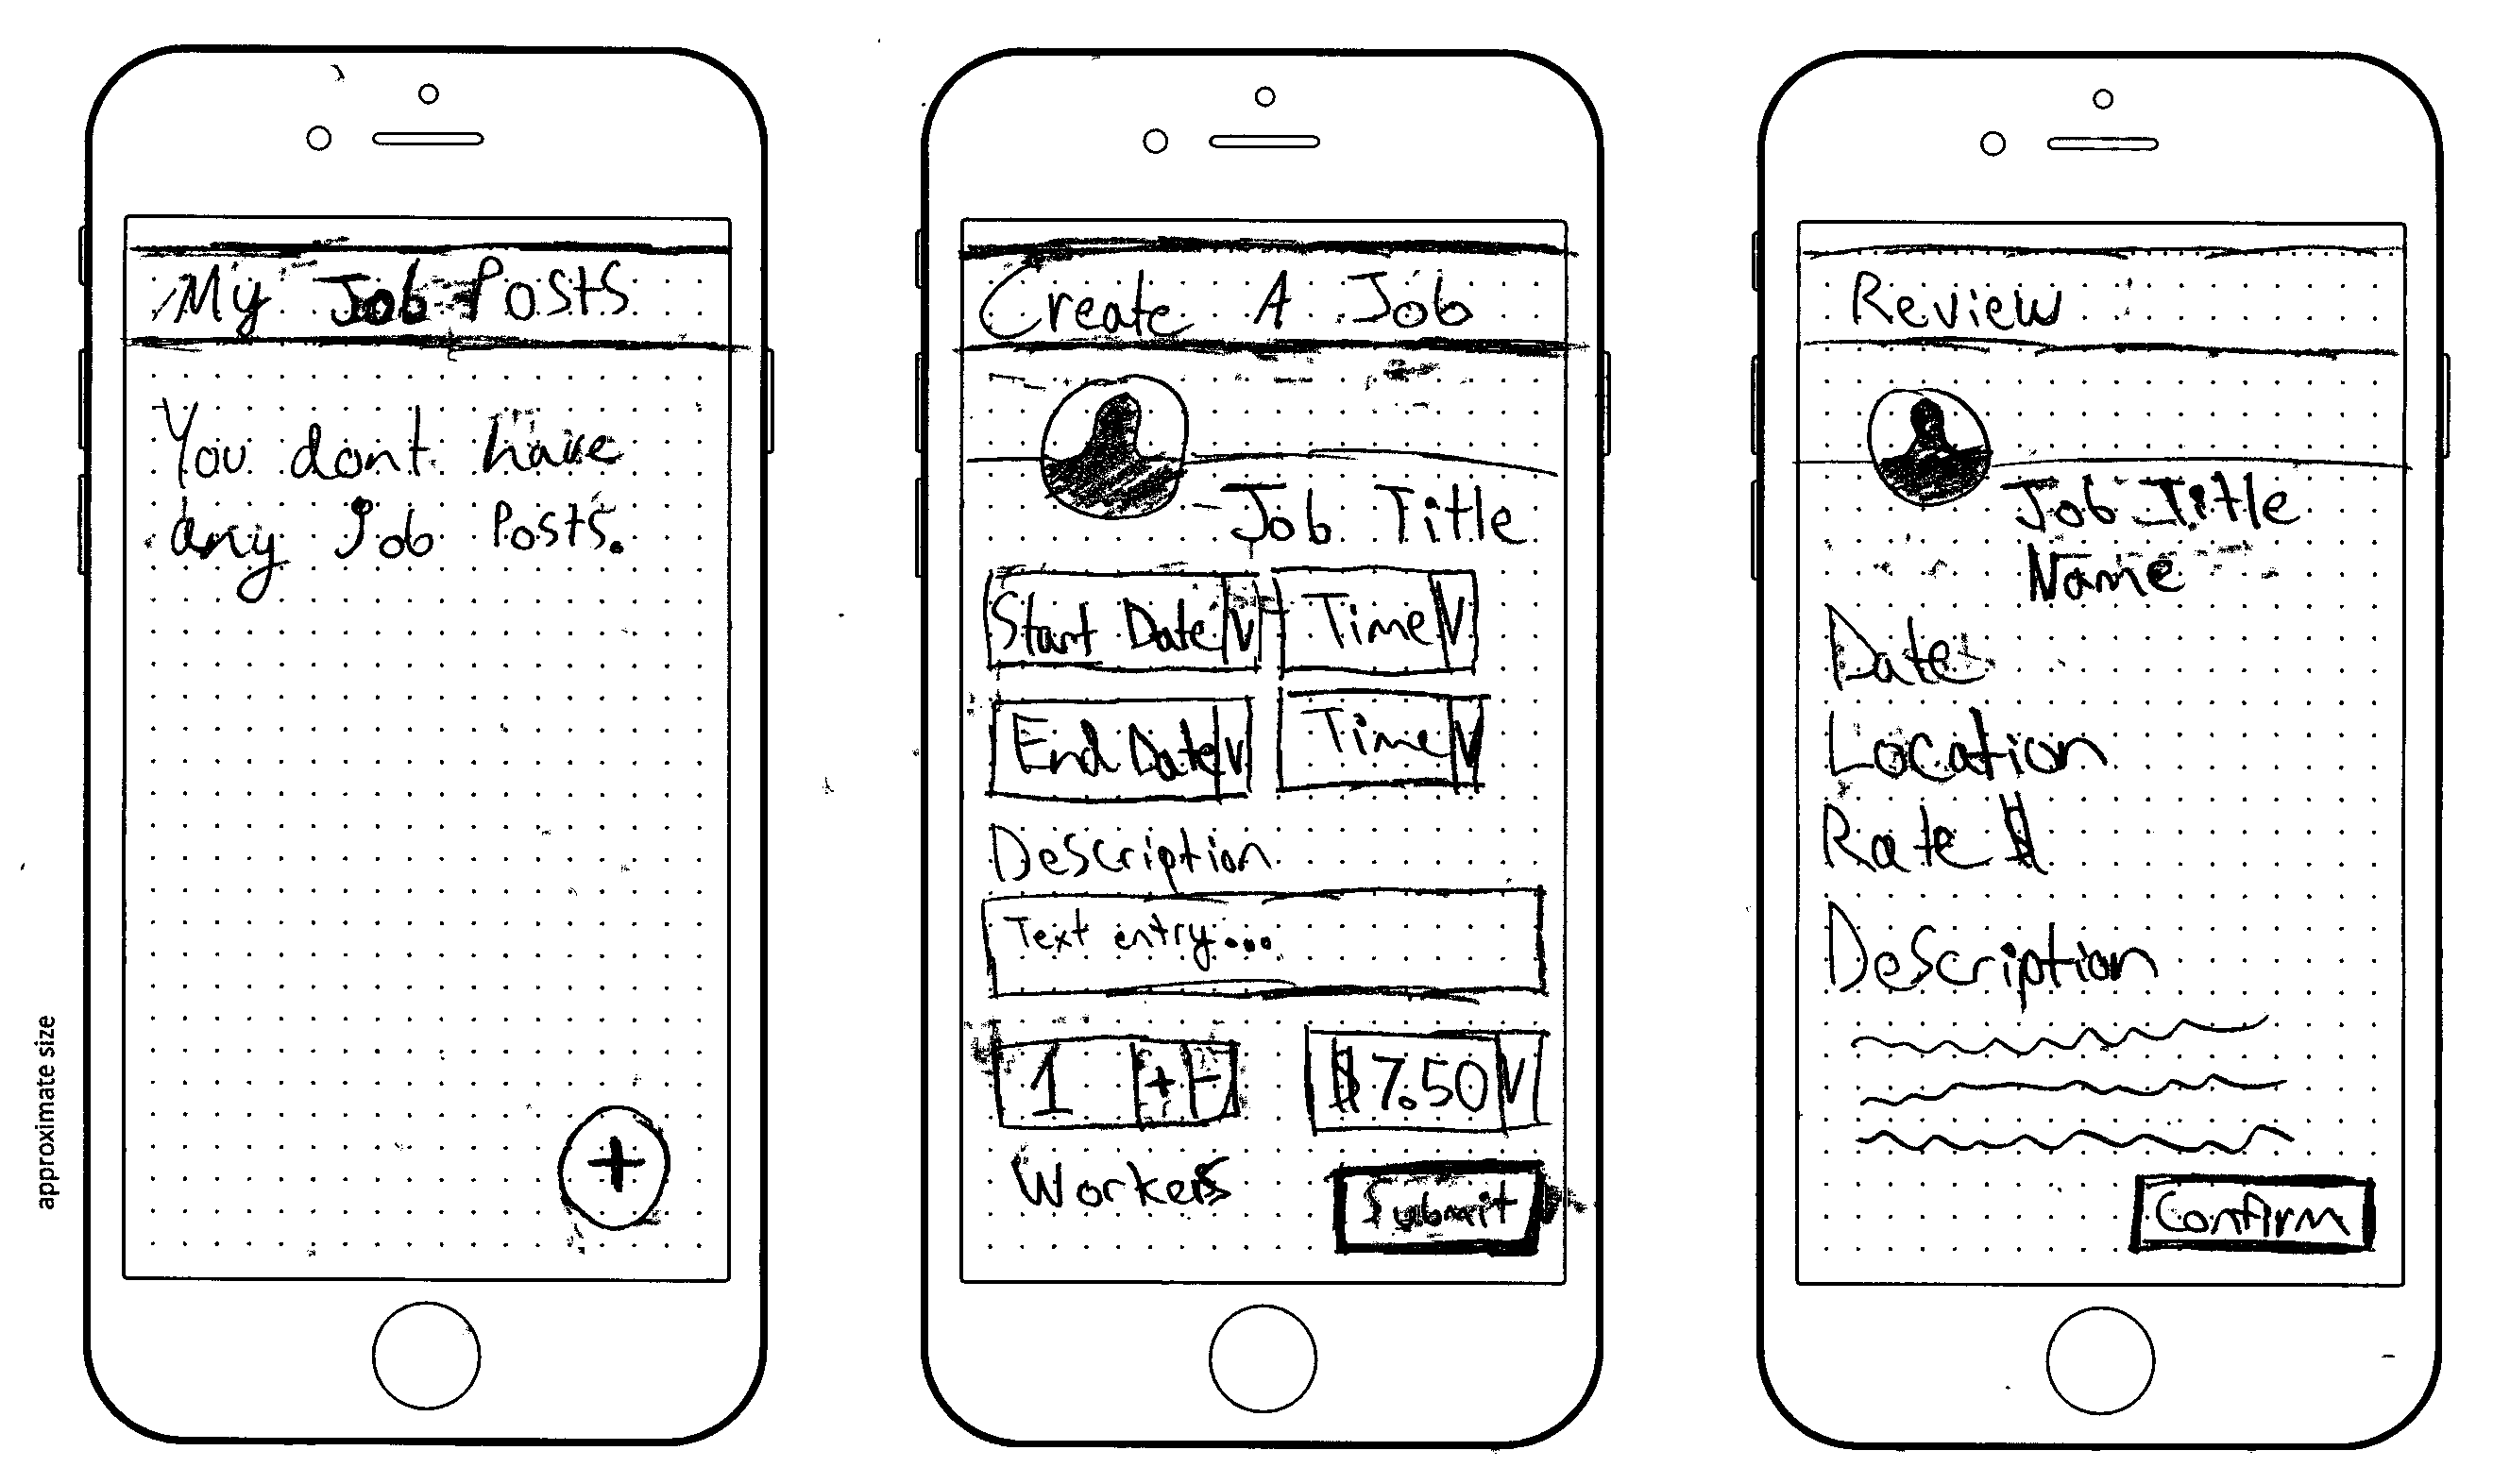 My Job Posts
You dont have
any Job Posts.
+
approximate size
Create A Job
Job Title
Start Date V Time V
End Date V Time V
Description
Text entry...
1 + - $7.50 V
Workers
Submit
Review
Job Title
Name
Date
Location
Rate $
Description
Confirm